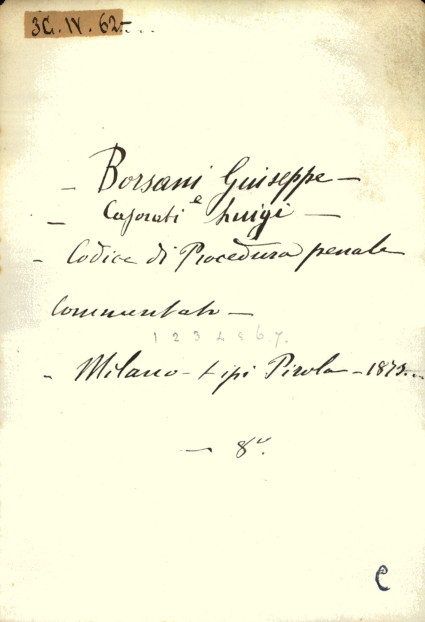 3C. IV. 62...
– Borsani Giuseppe –
e
– Casorati Luigi –
– Codice di Procedura penale
commentato –
1 2 3 4 5 6 7.
– Milano – tipi Pirola – 1873...
– 8°.
C